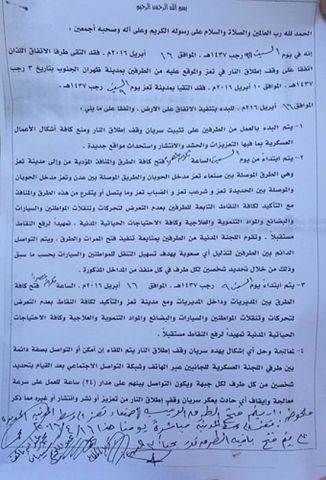 بسم الله الرحمن الرحيم
الحمد لله رب العالمين والصلاة والسلام على رسوله الكريم وعلى آله وصحبه أجمعين :
إنه في يوم السبت ٩ رجب ١٤٣٧هـ . الموافق ١٦ أبريل ٢٠١٦م . فقد التقى طرفا الاتفاق اللذان
اتفقا على وقف إطلاق النار في تعز والموقع عليه من الطرفين بمدينة ظهران الجنوب بتاريخ ٣ رجب
١٤٣٧هـ . الموافق ١٠ أبريل ٢٠١٦م . فقد التقيا بمدينة تعز يوم السبت ٩ رجب ١٤٣٧هـ .
الموافق ١٦ أبريل ٢٠١٦م . للبدء بتنفيذ الاتفاق على الارض . واتفقا على ما يلي :
١- يتم البدء بالعمل من الطرفين على تثبيت سريان وقف إطلاق النار ومنع كافة أشكال الأعمال
العسكرية بما فيها التعزيزات والحشد والانتشار واستحداث مواقع جديدة .
٢- يتم ابتداءً من يوم السبت الساعة فتح كافة الطرق والمنافذ المؤدية من وإلى مدينة تعز
وهي الطرق الموصلة بين صنعاء تعز مدخل الحوبان والطريق الموصل بين عدن وتعز مدخل الحوبان
والموصلة بين الحديدة تعز و شرعب تعز و الضباب تعز وما يتصل أو يتفرع من هذه الطرق والمنافذ
مع التأكيد كافة النقاط التابعة للطرفين بعدم التعرض للتحركات وتنقلات المواطنين والسيارات
والبضائع والمواد التنموية والعلاجية وكافة الاحتياجات الحياتية المدنية . تمهيداً لرفع النقاط
مستقبلاً . وتقوم اللجنة المدنية من الطرفين بمتابعة تنفيذ فتح الممرات والطرق . ويتم التواصل
الدائم بين الطرفين لتذليل أي صعوبة بهدف تسهيل التنقل للمواطنين والسيارات بحسب ما سبق
وذلك من خلال تحديد شخصين لكل طرف في كل منفذ من المداخل المذكورة .
٣- يتم ابتداءً يوم السبت ٩ رجب ١٤٣٧هـ . الموافق ١٦ أبريل ٢٠١٦م . الساعة فتح كافة
الطرق بين المديريات وداخل المديريات مع مدينة تعز والتأكيد لكافة النقاط بعدم التعرض
للتحركات وتنقلات المواطنين والسيارات و البضائع والمواد التنموية والعلاجية وكافة الاحتياجات
الحياتية المدنية تمهيداً لرفع النقاط مستقبلاً .
٤- لمعالجة وحل أي اشكال يهدد سريان وقف إطلاق النار يتم اللقاء إن أمكن أو التواصل بصفة دائمة
بين طرفي اللجنة العسكرية للجانبين عبر الهاتف وشبكة التواصل الاجتماعي بعد القيام بتحديد
شخصين من كل طرف لكل جبهة ويكون التواصل بينهم على مدار (٢٤) ساعة للعمل على سرعة
معالجة وإيقاف أي حادث يعكر سريان وقف إطلاق النار من تعزيز أو نشر وانتشار أو غيره مما ذكر